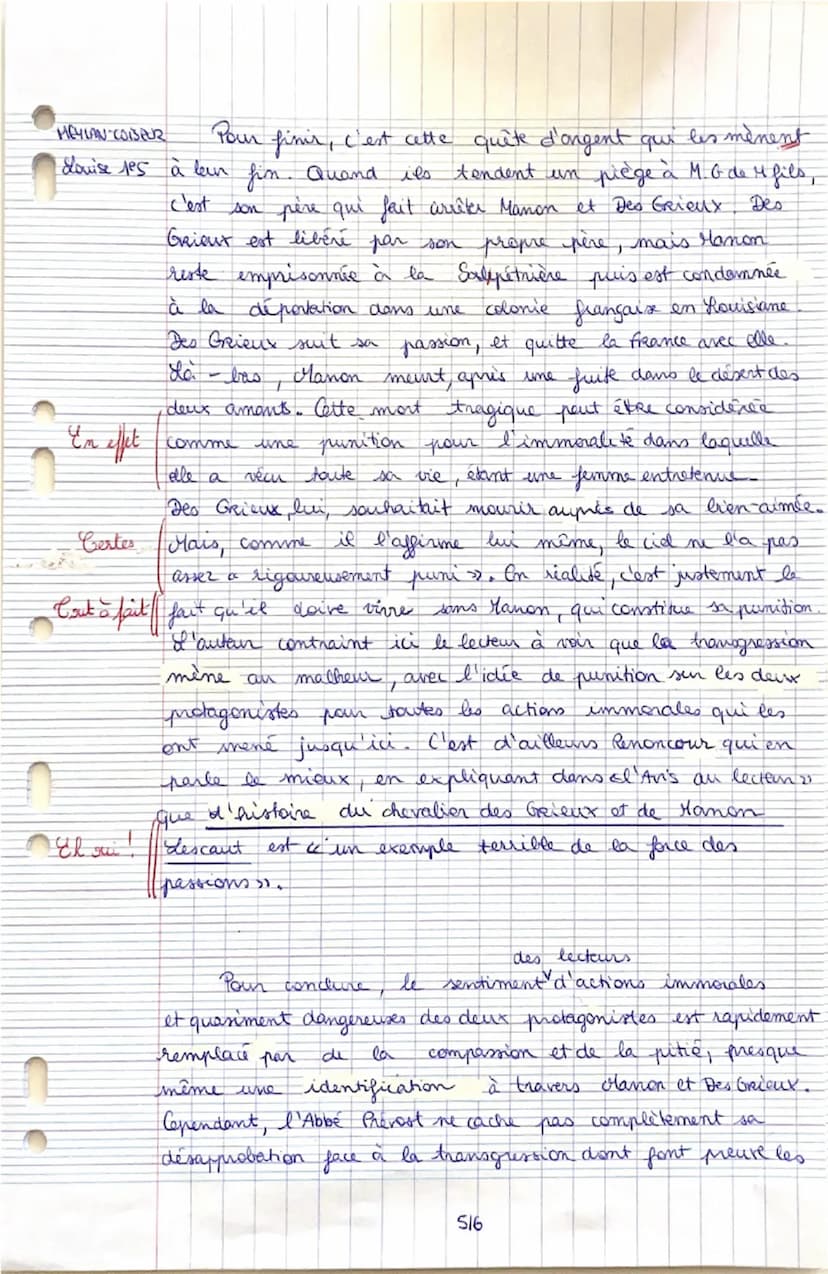 MEYLAN-COISEUR Pour finir, c'est cette quête d'argent qui les mènent
Louise 1e5 à leur fin. Quand ils tendent un piège à M. G de M fils,
c'est son père qui fait arrêter Manon et Des Grieux. Des
Grieux est libéré par son propre père, mais Manon
reste emprisonnée à la Salpêtrière puis est condamnée
à la déportation dans une colonie française en Louisiane.
Des Grieux suit sa passion, et quitte la France avec elle.
Là-bas, Manon meurt, après une fuite dans le désert des
deux amants. Cette mort tragique peut être considérée
En effet comme une punition pour l'immoralité dans laquelle
elle a vécu toute sa vie, étant une femme entretenue.
Des Grieux, lui, souhaitait mourir auprès de sa bien-aimée.
Certes Mais, comme il l'affirme lui même, le ciel ne l'a pas
assez « rigoureusement puni ». En réalité, c'est justement le
Tout à fait fait qu'il doive vivre sans Manon, qui constitue sa punition.
L'auteur contraint ici le lecteur à voir que la transgression
mène au malheur, avec l'idée de punition sur les deux
protagonistes pour toutes les actions immorales qui les
ont mené jusqu'ici. C'est d'ailleurs Renoncour qui en
parle le mieux, en expliquant dans « l'Avis au lecteur »
que l'histoire du chevalier des Grieux et de Manon
Eh oui ! Lescaut est « un exemple terrible de la force des
passions ».
des lecteurs
Pour conclure, le sentiment d'actions immorales
et quasiment dangereuses des deux protagonistes est rapidement
remplacé par de la compassion et de la pitié, presque
même une identification à travers Manon et Des Grieux.
Cependant, l'Abbé Prévost ne cache pas complètement sa
désapprobation face à la transgression dont font preuve les
5/6